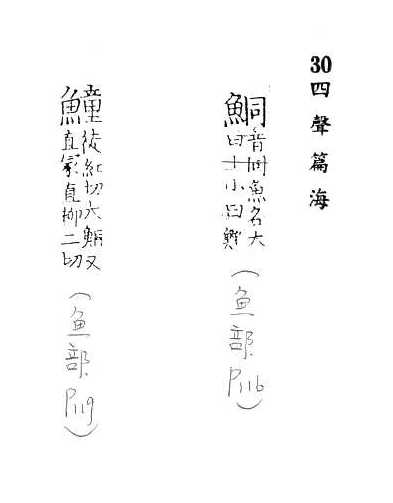 30四聲篇海
鮦音同魚名大
曰十小曰
(鱼部P116)
徒紅切大鮦又
直冢直柳二切
(鱼部P119)